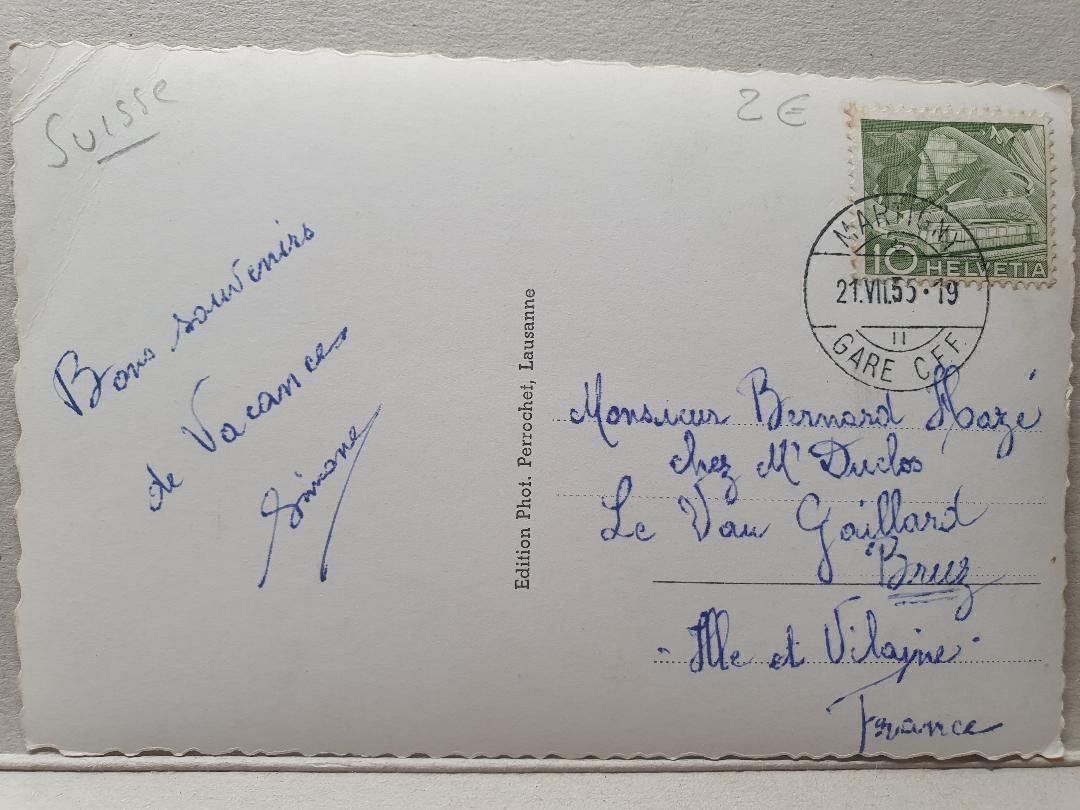 Suisse
2€
10 HELVETIA
MARTIGNY
21.VII.55·19
II
GARE CFF.
Bons souvenirs
de Vacances
Simone
Edition Phot. Perrochet, Lausanne
Monsieur Bernard Hazé
chez Mr Duclos
Le Vau Gaillard
Bruz
- Ille et Vilaine -
France